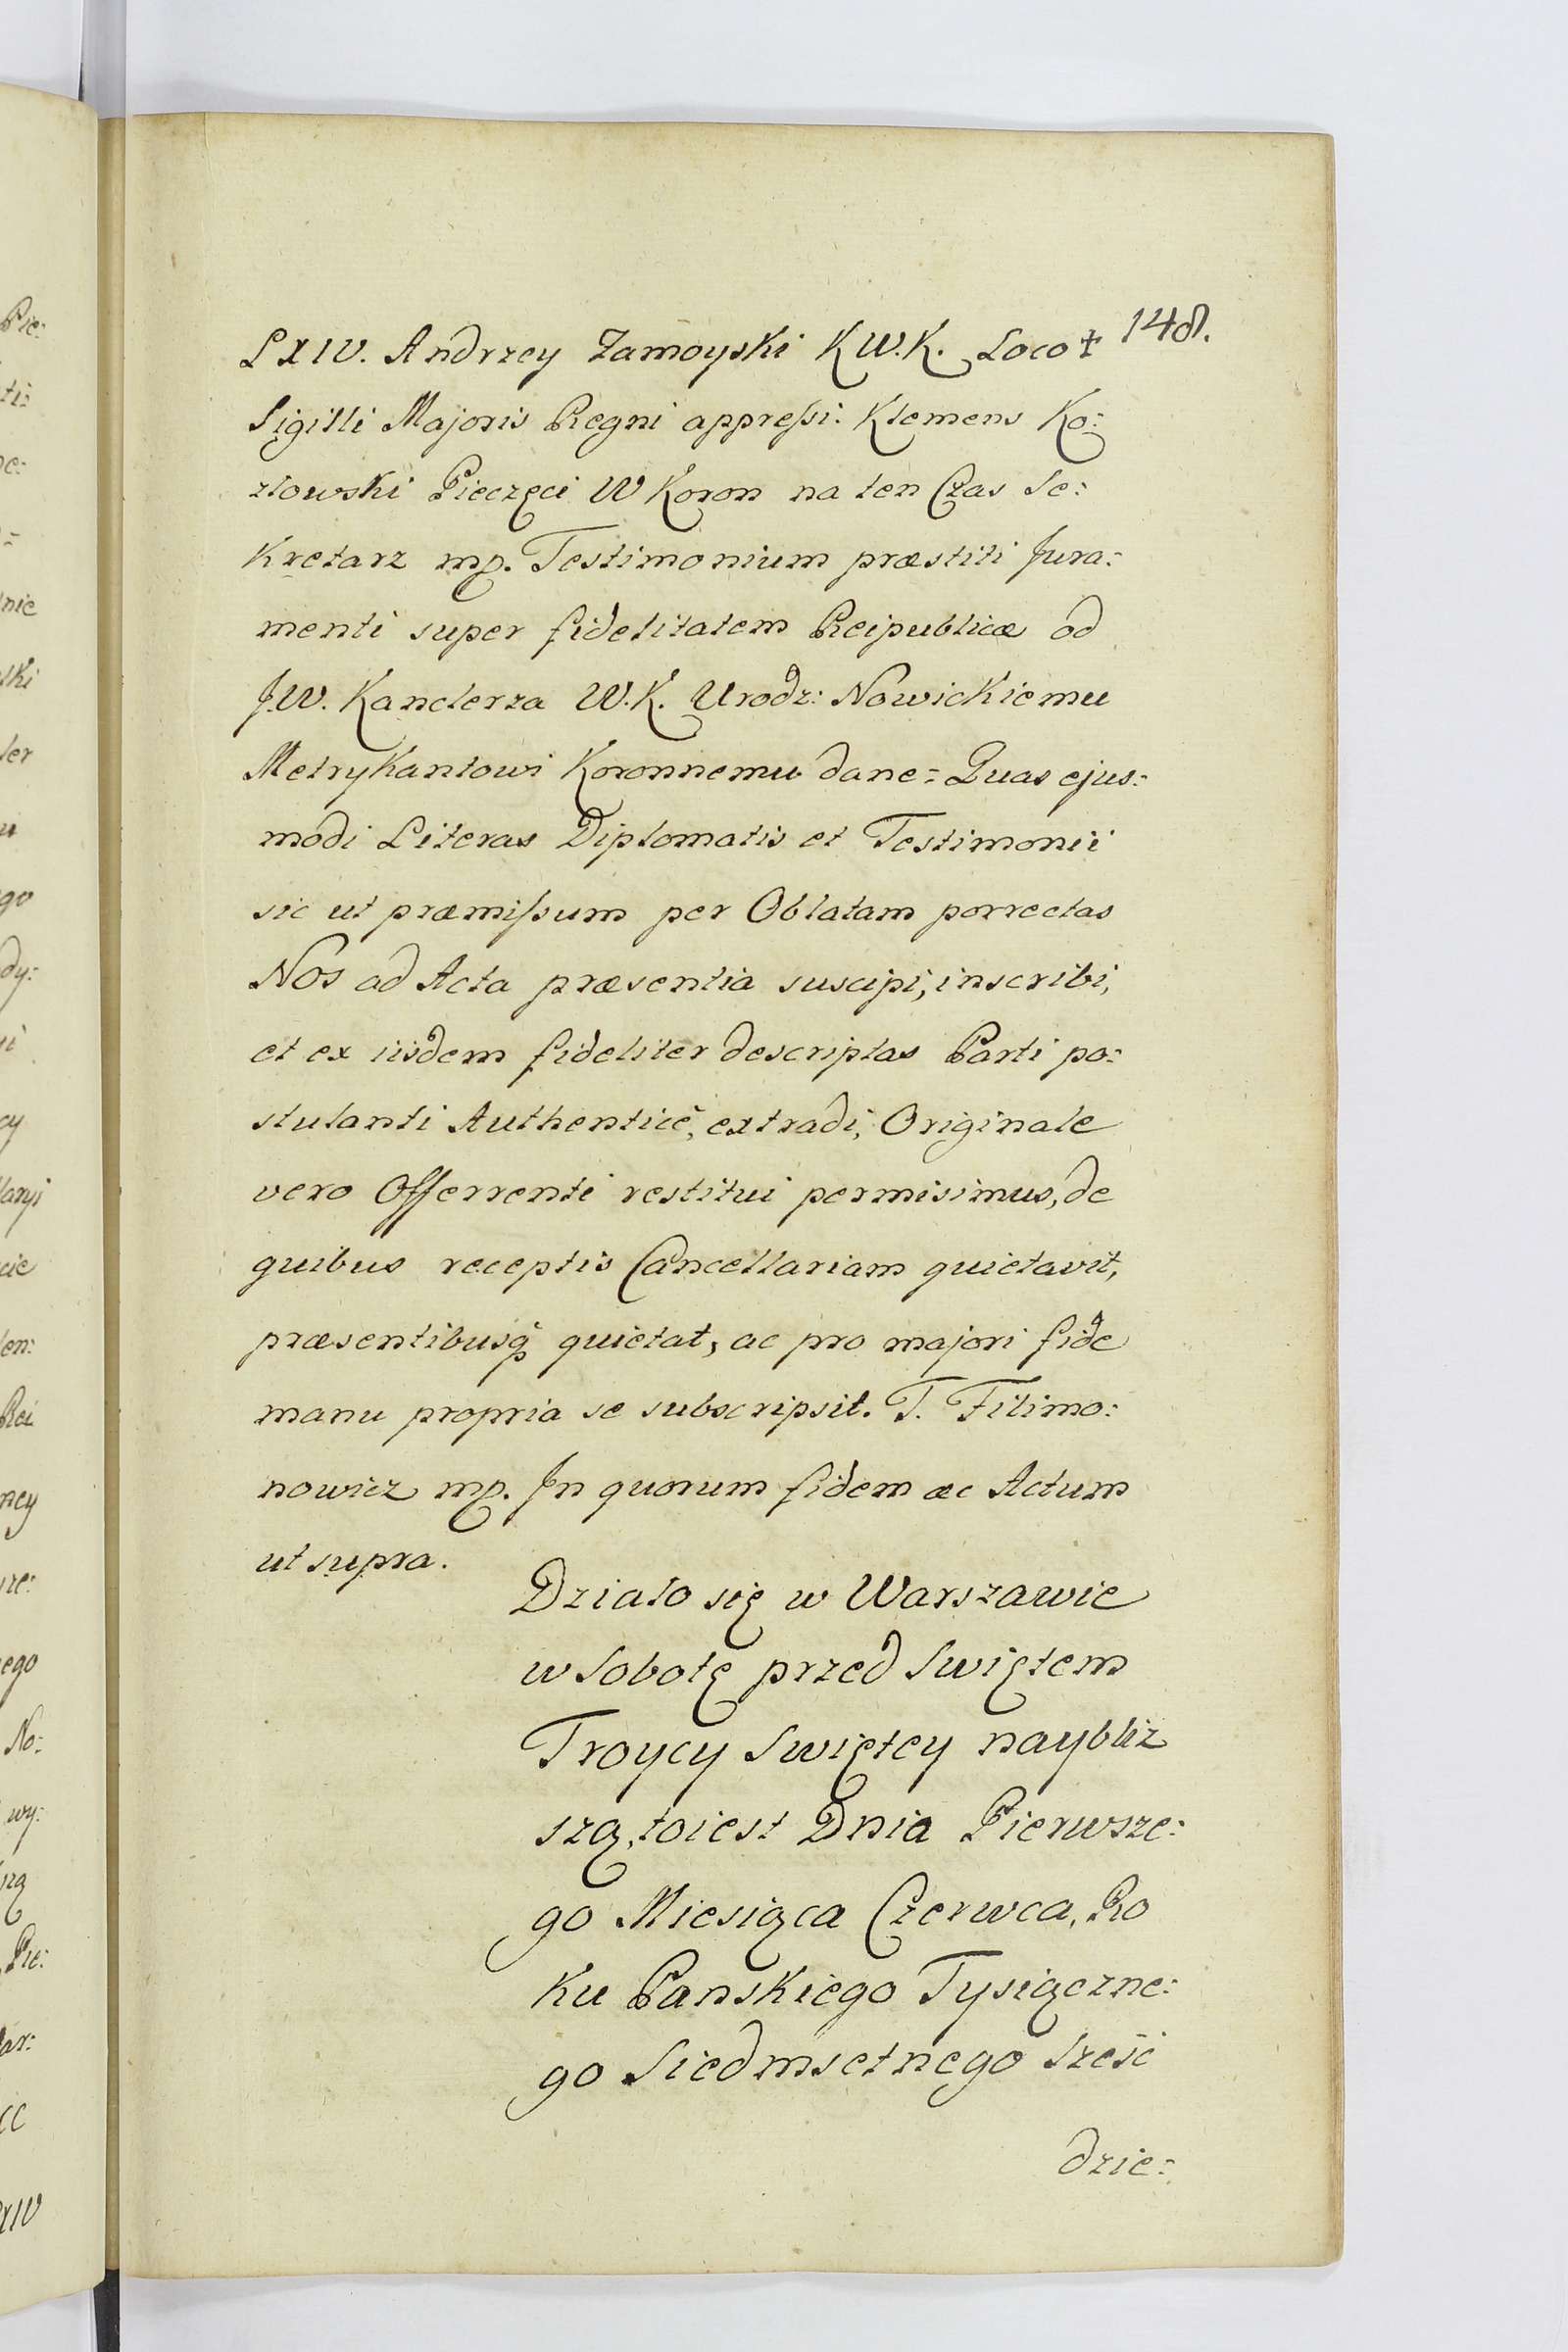 148.
LXIV. Andrzey Zamoyski K W. K. Loco +
Sigilli Majoris Regni appressi. Klemens Ko:
złowski Pieczęci W Koron na ten Czas Se:
kretarz mp. Testimonium præstiti Jura:
menti super fidelitatem Reipublicæ od
J.W. Kanclerza W.K. Urodz: Nowickiemu
Metrykantowi Koronnemu dane = Quas ejus:
modi Literas Diplomatis et Testimonii
sic ut præmissum per Oblatam porrectas
Nos ad Acta præsentia suscipi, inscribi,
et ex iisdem fideliter descriptas Parti po:
stulanti Authenticè, extradi, Originale
vero Offerrenti restitui permisimus, de
quibus receptis Cancellariam quietavit,
præsentibusq̃ quietat, ac pro majori fide
manu propria se subscripsit. T. Filimo:
nowicz mp. Jn quorum fidem ac Actum
ut supra.
Działo się w Warszawie
w Sobotę przed Swiętem
Troycy Swiętey naybliż
szą, toiest Dnia Pierwsze:
go Miesiąca Czerwca, Ro
ku Panskiego Tysiączne:
go Siedmsetnego Sześć
dzie:
Pie:
ti:
nie
ski
ler
u
go
dy:
cy
laryi
cie
len:
Rei
ney
ego
No:
wy:
Pie:
dar:
XIV